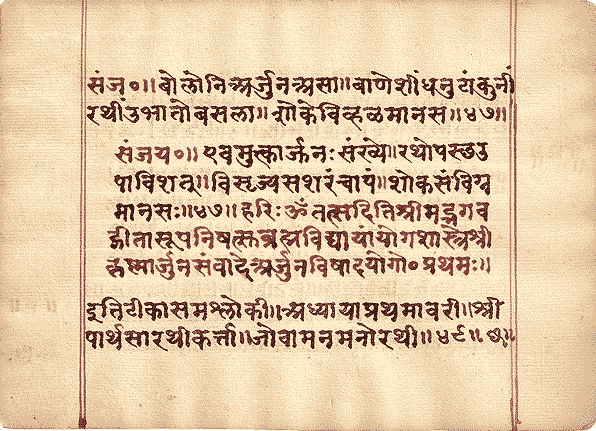 संज०॥ बोलोनि अर्जुन असा॥ बाणेशीं धनु टाकुनी
रथीं उभा तो बसला॥ शोके विव्हळमानस॥४७॥
संजय०॥ एवमुत्कार्जुनः संख्ये॥ रथोपस्छउ
पाविशत्॥ विसृज्य सशरं चापं॥ शोकसंविग्न
मानसः॥४७॥ हरिः ॐ तत्सदिति श्रीमद्भगव
द्गीतासूपनिषत्सु ब्रह्मविद्यायां योगशास्त्रे श्री
कृष्णार्जुनसंवादे अर्जुनविषादयोगो० प्रथमः॥
इति टीका समश्लोकी॥ अध्याया प्रथमावरी॥ श्री
पार्थसारथी कर्त्ता॥ जो वामनमनोरथी॥४८॥